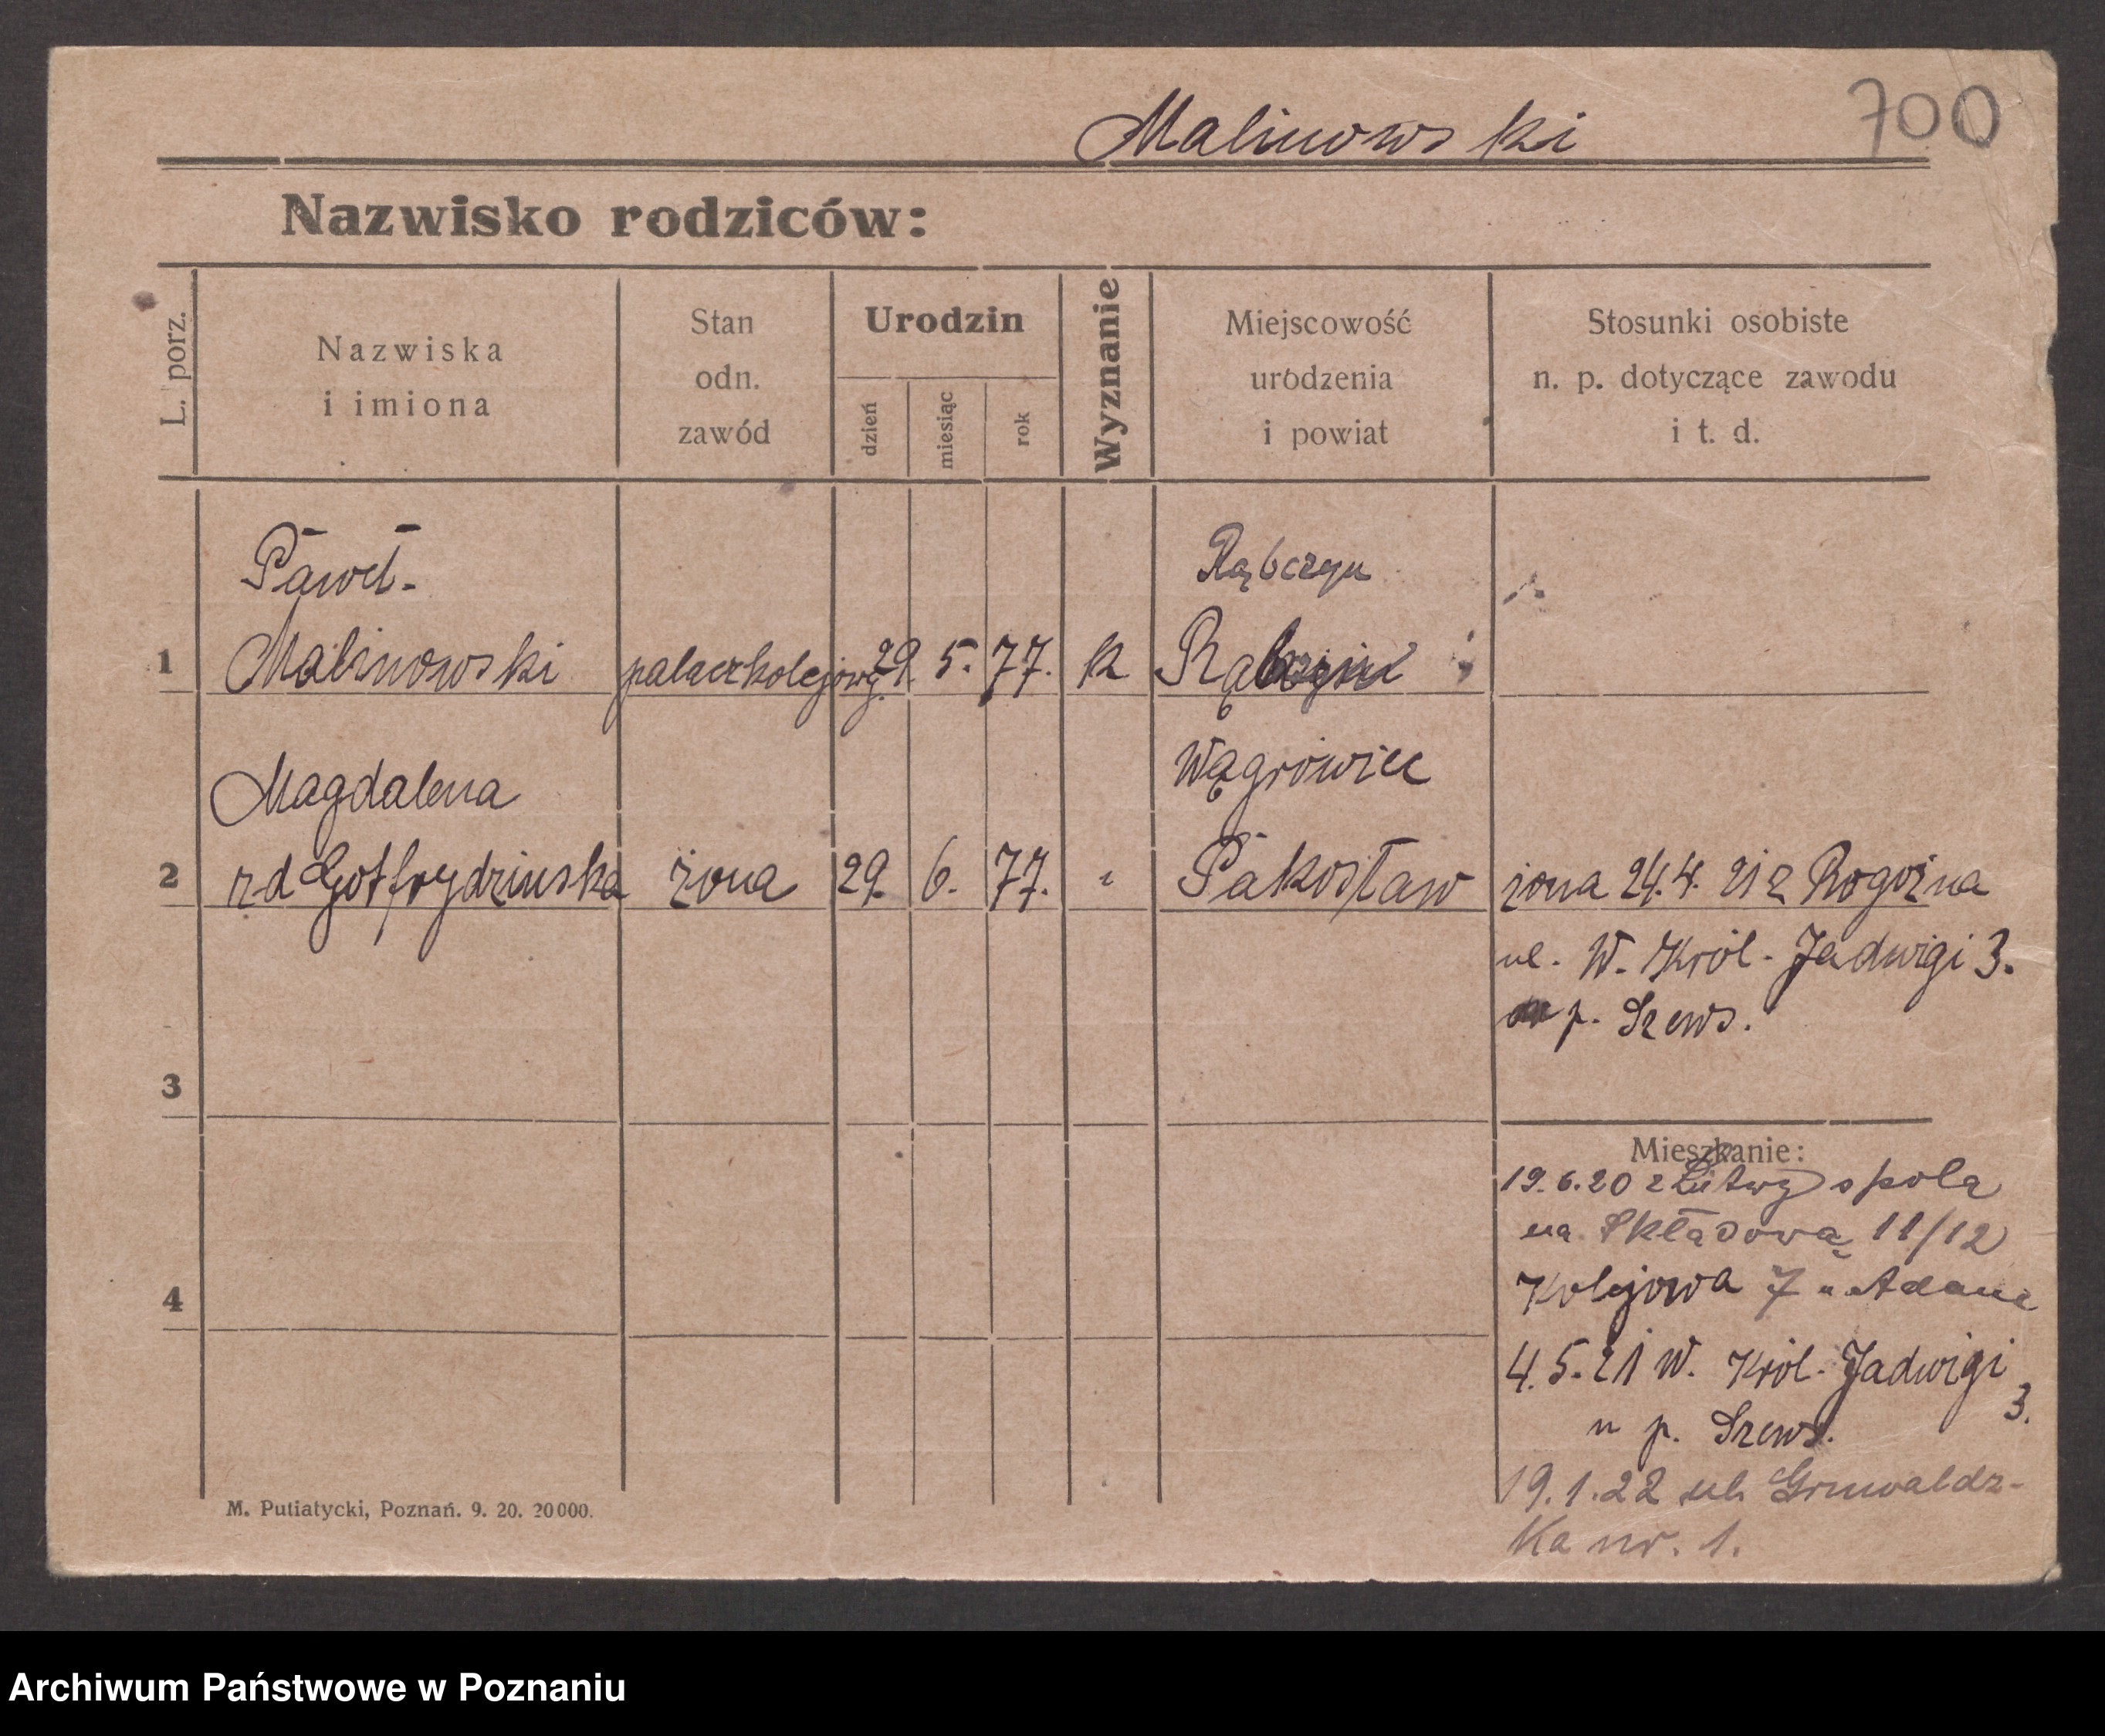 700
Malinowski
Nazwisko rodziców:
L. porz.
Nazwiska
i imiona
Stan
odn.
zawód
Urodzin
dzień
miesiąc
rok
Wyznanie
Miejscowość
urodzenia
i powiat
Stosunki osobiste
n. p. dotyczące zawodu
i t. d.
Paweł Rąbczyn
1 Malinowski palacz kolejowy 29. 5. 77. k
Magdalena Wągrowiec
2 zd Gotfrydzinska żona 29. 6. 77. " Pakosław żona 24.4.21 z Rogoźna
ul. W. Król. Jadwigi 3.
p. Szews.
3
Mieszkanie:
19.6.20 z Litwy
na Składową 11/12
Kolejowa 7 u Adama
4
4.5.21 W. Król. Jadwigi
3.
u p. Szews.
19.1.22 ul. Grunwaldz-
ka nr. 1.
M. Putiatycki, Poznań. 9. 20. 20000.
Archiwum Państwowe w Poznaniu